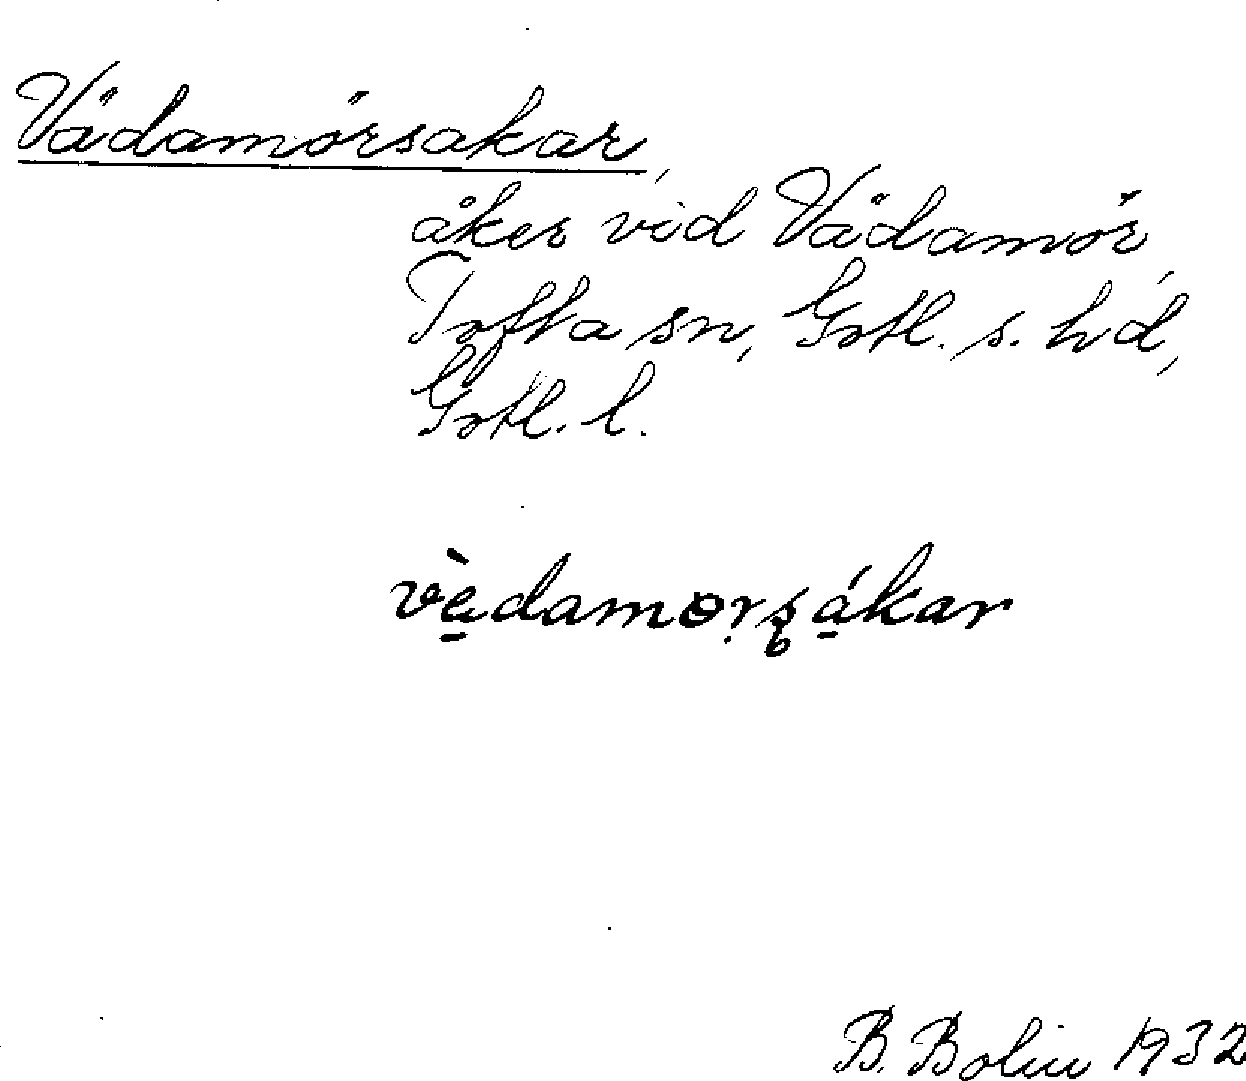 Vädamörsakar,
åker vid Vädamör,
Tofta sn, Gotl. s. hd,
Gotl. l.
vè̱damorsá̱kar
B. Bolin 1932